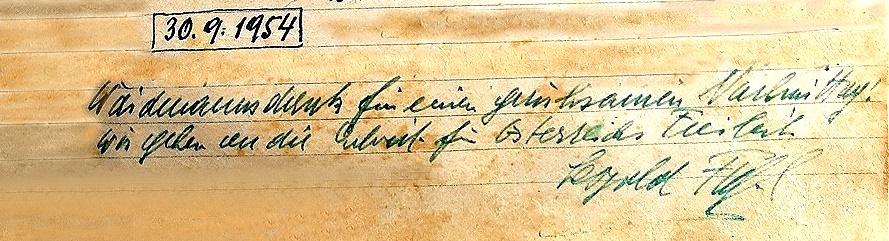 30.9.1954
Waidmannsdank für einen geruhsamen Nachmittag!
wir gehen an die Arbeit für Österreichs Freiheit
Leopold Figl